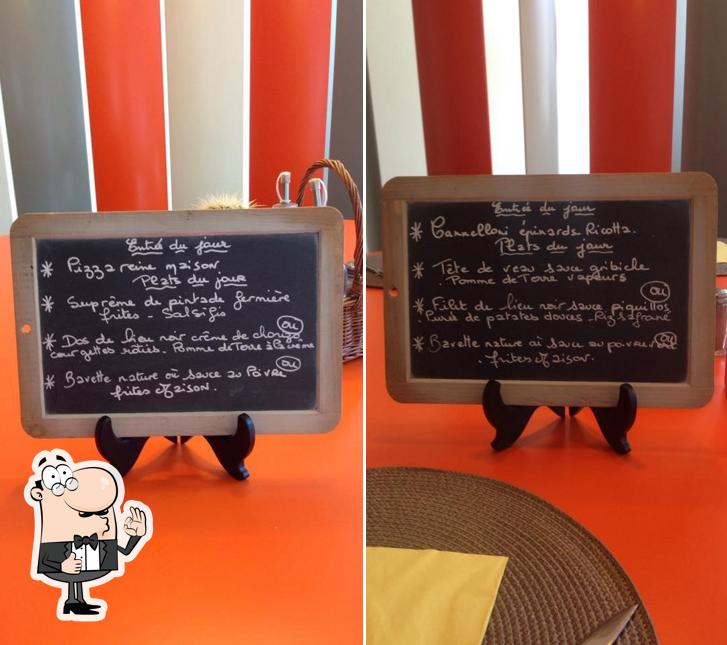 Entrée du jour
* Pizza reine maison.
Plats du jour
* Suprême de pintade fermière
frites - Salsifis
ou
* Dos de lieu noir crème de chorizo
courgettes roties. Pomme de Terre à la crème
ou
* Bavette nature où sauce au Poivre
frites Maison.
Entrée du jour
* Cannelloni épinards Ricotta.
Plats du jour
* Tête de veau sauce gribiche
. Pomme de Terre vapeurs
ou
* Filet de lieu noir sauce piquillos
. Purée de patates douces - Riz safrané
ou
* Bavette nature où sauce au poivre vert
. frites Maison.